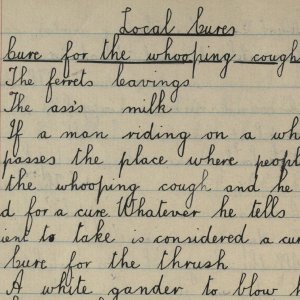 Local Cures
Cure for the whooping cough
The ferrets leavings
The ass's milk
If a man riding on a wh
passes the place where peopl
the whooping cough and he
d for a cure. Whatever he tells
ient to take is considered a cur
Cure for the thrush
A white gander to blow